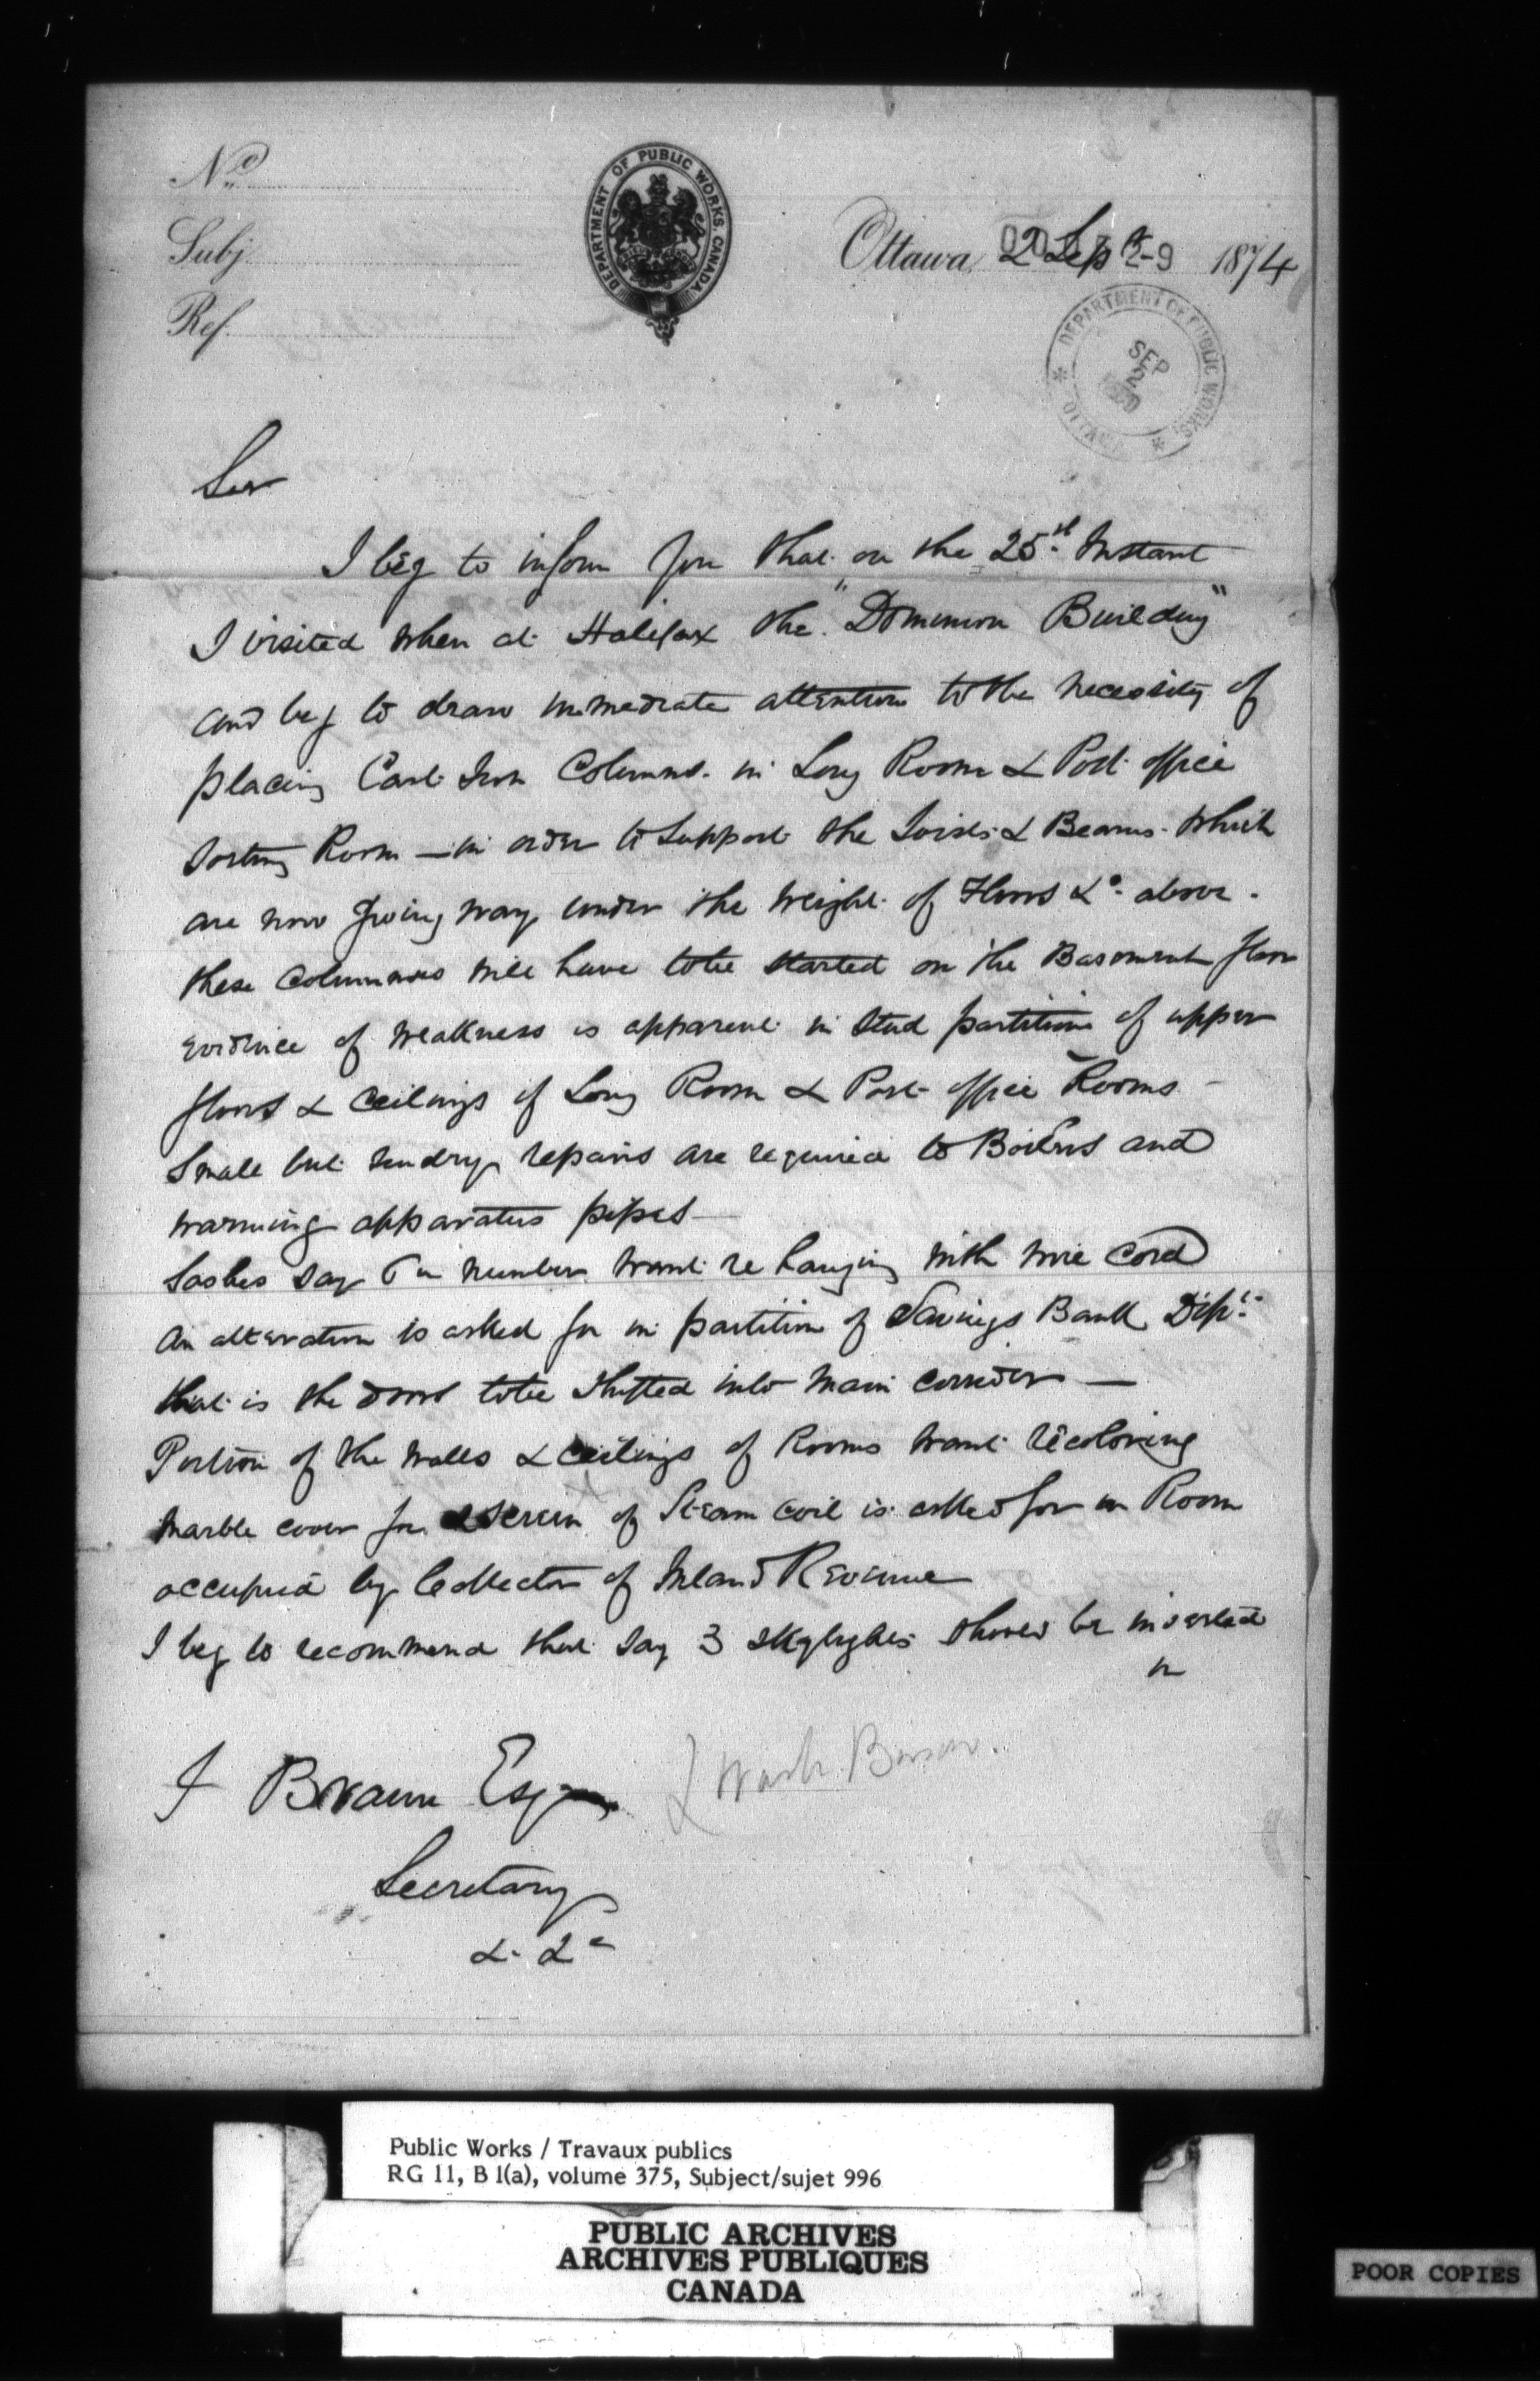 No.
Subj.
Ref.
DEPARTMENT OF PUBLIC WORKS. CANADA
Ottawa, 2 Sep 1874
DEPARTMENT OF PUBLIC WORKS. OTTAWA
SEP
Sir
I beg to inform you that on the 25th Instant
I visited when at Halifax the "Dominion Building"
and beg to draw immediate attention to the necessity of
placing Cast Iron Columns in Long Room & Post office
Sorting Room — in order to Support the Joists & Beams which
are now giving way under the weight of Floors &c above.
these Columns will have to be started on the Basement floor
evidence of weakness is apparent in stud partitions of upper
floors & ceilings of Long Room & Post office Rooms -
Small but sundry repairs are required to Boilers and
warming apparatus pipes —
Sashes say 6 in number want re hanging with wire Cord
An alteration is asked for in partition of Savings Bank Dept.
that is the door to be shifted into main corridor —
Portion of the walls & ceilings of Rooms want recoloring
marble cover for & screen of Steam coil is asked for in Room
occupied by Collector of Inland Revenue
I beg to recommend that say 3 skylights should be inserted
in
F Braun Esq
& Wash Bason.
Secretary
&. &c
Public Works / Travaux publics
RG 11, B 1(a), volume 375, Subject/sujet 996
PUBLIC ARCHIVES
ARCHIVES PUBLIQUES
CANADA
POOR COPIES